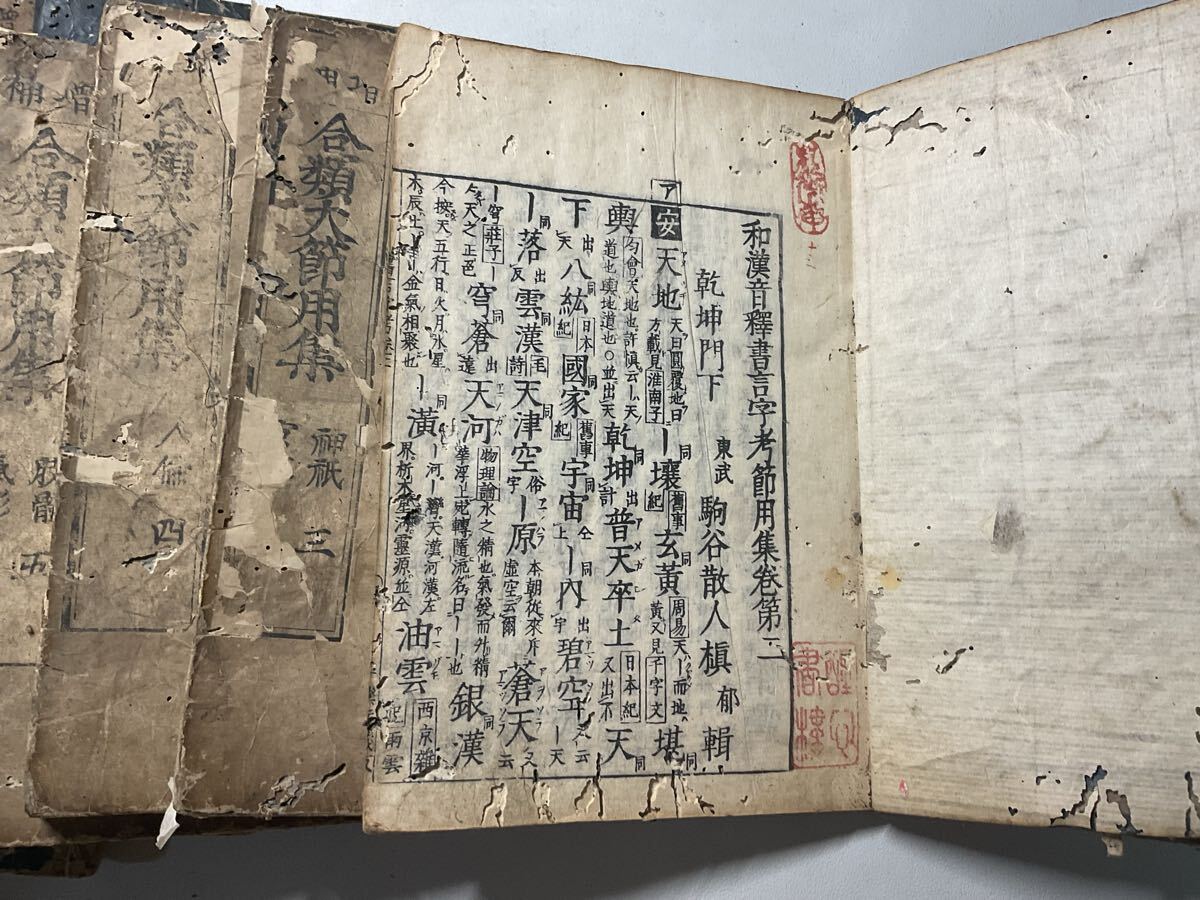 和漢音釋書言字考節用集卷第二
乾坤門下
東武 駒谷散人槇郁輯
ア 安 天地 天曰圓覆地曰方載見淮南子 ー壤 同 舊事紀 玄黃 同 周易天ー而地黃又見千字文 堪 同
輿 韵會天地也許慎云ー天道也輿地道也○並出天 乾坤 同 出計 普天卒土 日本紀又出不 天 同
下 出天 八紘 同 日本紀 國家 同 舊事紀 宇宙 同 仝上 ー內 同 出宇 碧空 云ー天
ー落 同 出反 雲漢 同 毛詩 天津空 同 俗字 ー原 本朝從來斥虛空云爾 蒼天 又云
ー穹 莊子ー々天之正色 穹蒼 同 出遠 天河 物理論水之精也氣發而升精華浮上宛轉隨流名曰ーー也 銀漢 同
今按天五行日火月水星木辰土 金氣相聚也 ー潢 同 ー河ー灣天漢河漢左界析木 河靈源並仝 油雲 西京雜 雨雲
合類大節用集 神祇 三
合類大節用集 人倫 四
增補 合類大節用集 肢體 五